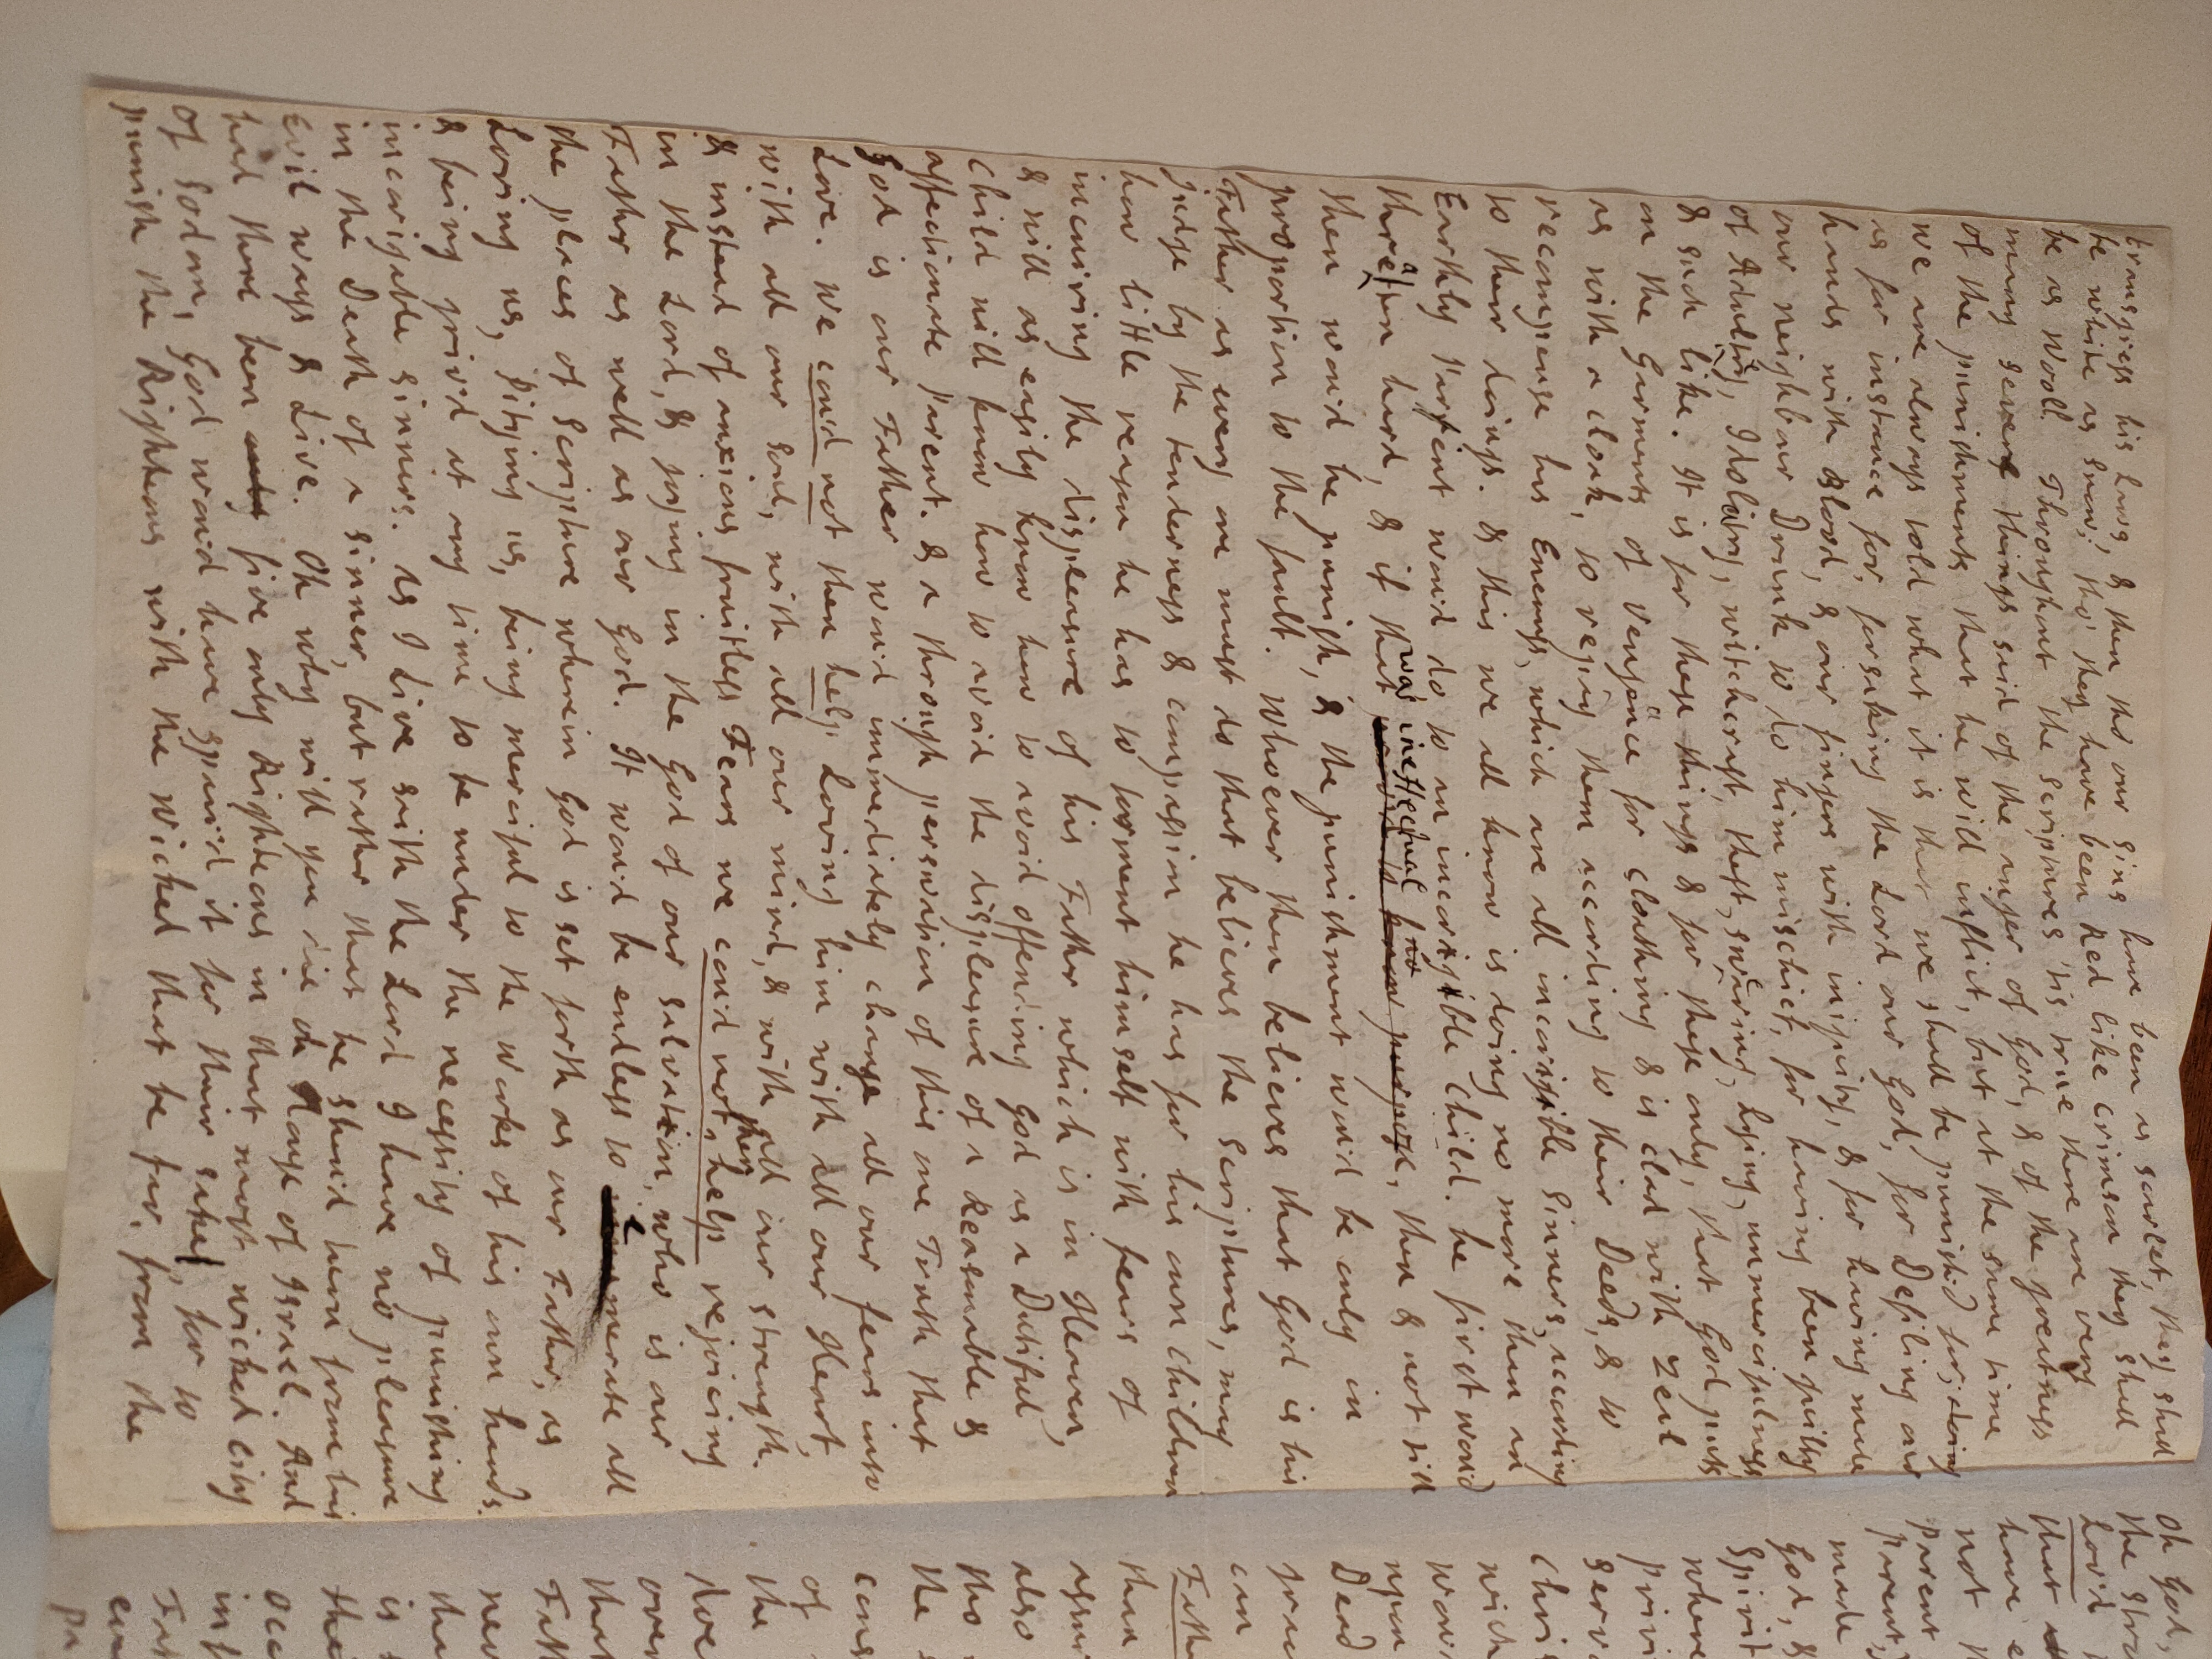 transgress his Laws, & then tho' our sins have been as scarlet, they shall
be white as Snow; tho' they have been Red like Crimson they shall
be as Wooll. Throughout the scriptures 'tis true there are very
many severe things said of the anger of God, & of the greatness
of the punishments that he will inflict, but at the same time
we are always told what it is that we shall be punish'd for; doing
as for instance for, forsaking the Lord our God, for Defiling our
hands with Blood, & our fingers with iniquity, & for having made
our neighbour Drunk to do him mischief, for having been guilty
of Adultery, Idolatry, witchcraft, theft, swearing, Lying, unmercifulness
& such like. It is for these things & for these only, that God puts
on the Garments of Vengeance for cloathing & is clad with zeal
as with a cloak, to repay them according to their Deeds, & to
recompense his Enemys, which are all incorigible Sinners, according
to their doings. & this we all know is doing no more than an
Earthly Parent wou'd do to an incorigible Child. he first wou'd
threaten hard, & if that was ineffectual prov'd to know no purpose, then & not till
then wou'd he punish, & the punishment wou'd be only in
proportion to the fault. Whoever then believes that God is his
Father as every one must do that believes the Scriptures, may
judge by the tenderness & compassion he has for his own Children
how little reason he has to torment himself with fears of
incuiring the displeasure of his Father which is in Heaven,
& will as easily know how to avoid offending God as a Dutiful
Child will know how to avoid the displeasure of a Reasonable &
affectionate Parent. & a through perswation of this one Truth that
God is our Father wou'd immediately change all our fears into
Love. We cou'd not then help Loving him with all our Heart,
with all our soul, with all our mind, & with all our strength.
& instead of anxious fruitless Fears we cou'd not then help rejoicing
in the Lord, & joying in the God of our salvation, who is our
Father as well as our God. It wou'd be endless to enumerate all
the places of Scripture wherein God is set forth as our Father, as
Loving us, Pitying us, being merciful to the Works of his own hands.
& being griv'd at any time to be under the necessity of punishing
incorigable sinners. As I Live saith the Lord I have no pleasure
in the Death of a sinner, but rather that he shou'd turn from his
Evil ways & Live. Oh why will you die oh House of Israel. And
had there been only five only Righteous in that most wicked city
of Sodom, God wou'd have spair'd it for their sake, for to
punish the Righteous with the Wicked that be far, from the
Oh God,
the
Lov'd
that
have
not
Parent
Parent,
made
God, &
Spirit
where
Christ
upon
Dead
can
than
also
tho
the
of
the
over
that
is
the